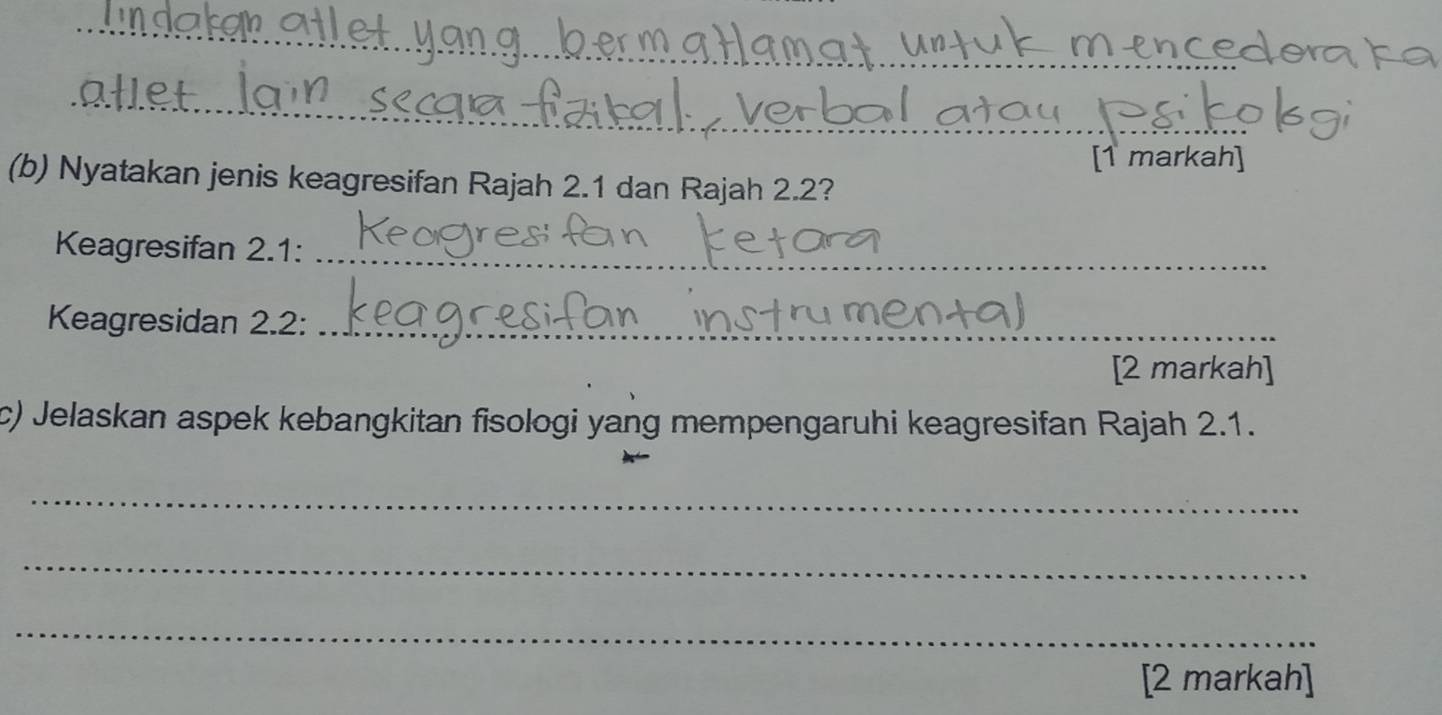 tindakan atlet yang bermatlamat untuk mencederaka
atlet lain secara fizikal, verbal atau psikologi
[1 markah]
(b) Nyatakan jenis keagresifan Rajah 2.1 dan Rajah 2.2?
Keagresifan 2.1: Keagresifan ketara
Keagresidan 2.2: keagresifan instrumental
[2 markah]
c) Jelaskan aspek kebangkitan fisologi yang mempengaruhi keagresifan Rajah 2.1.
[2 markah]